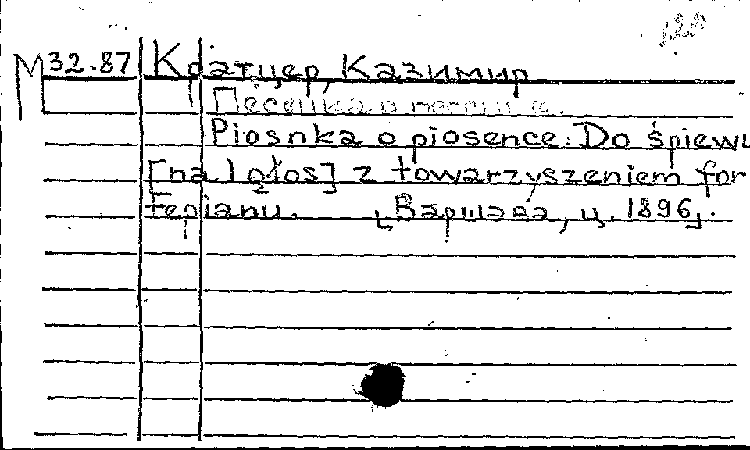 М 32.87 Кратцер, Казимир
Песенка о песенке.
Piosnka o piosence: Do śpiewu
[na 1 głos] z towarzyszeniem for
tepianu. [Варшава, ц. 1896].